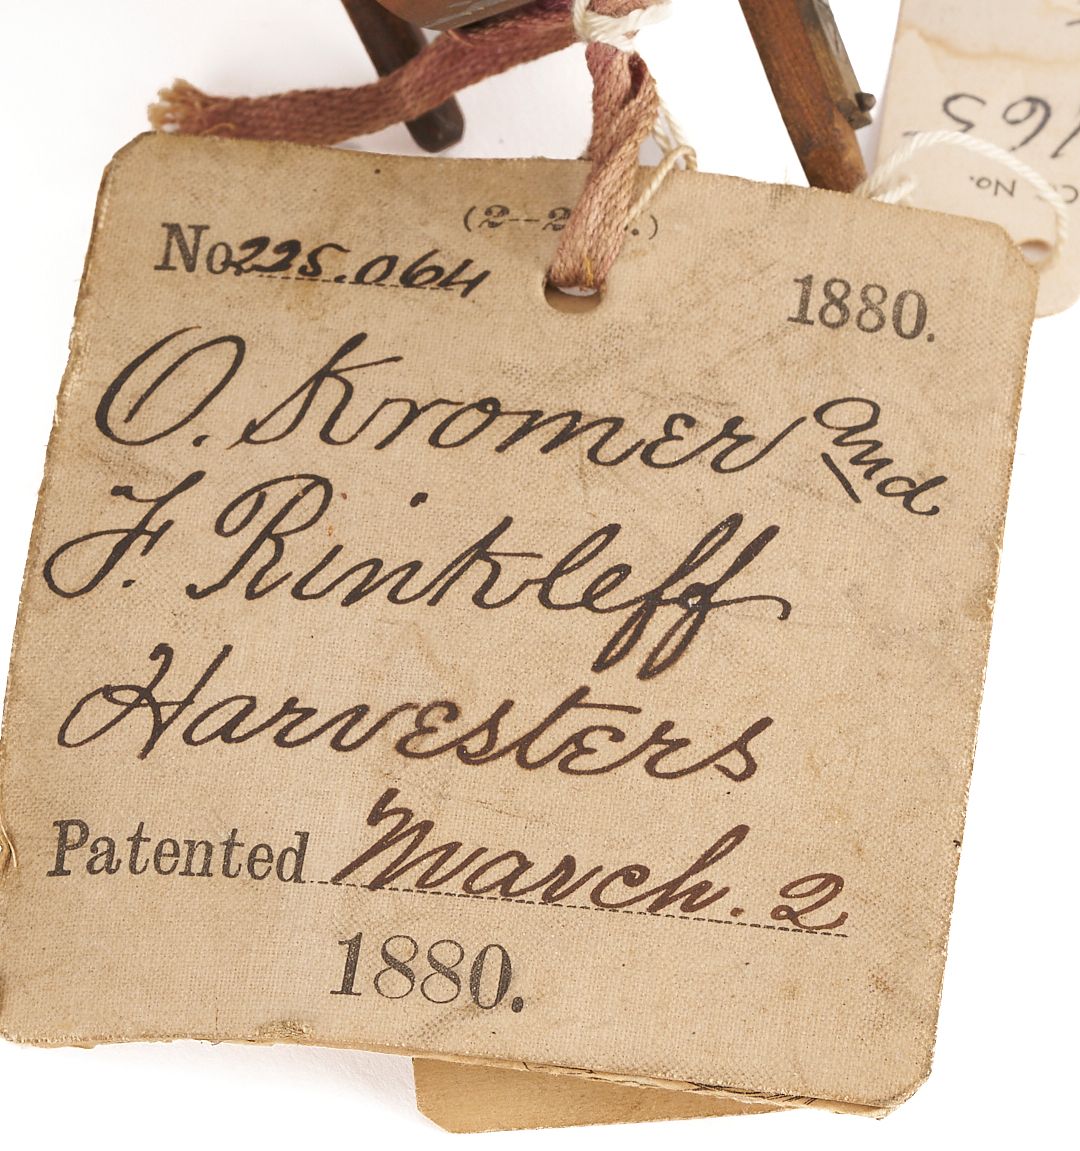 No. 225.064
1880.
O. Kromer and
F. Rinkleff
Harvesters
Patented March. 2
1880.
165
No.